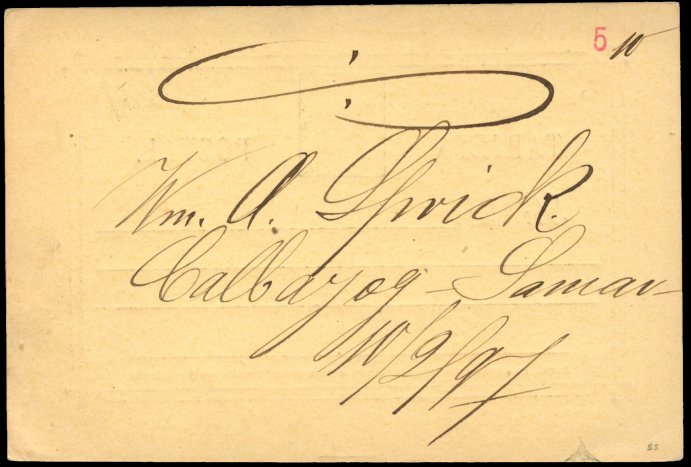 5 10
Wm. A. Spvick.
Calbayog - Samar -
10/2/97